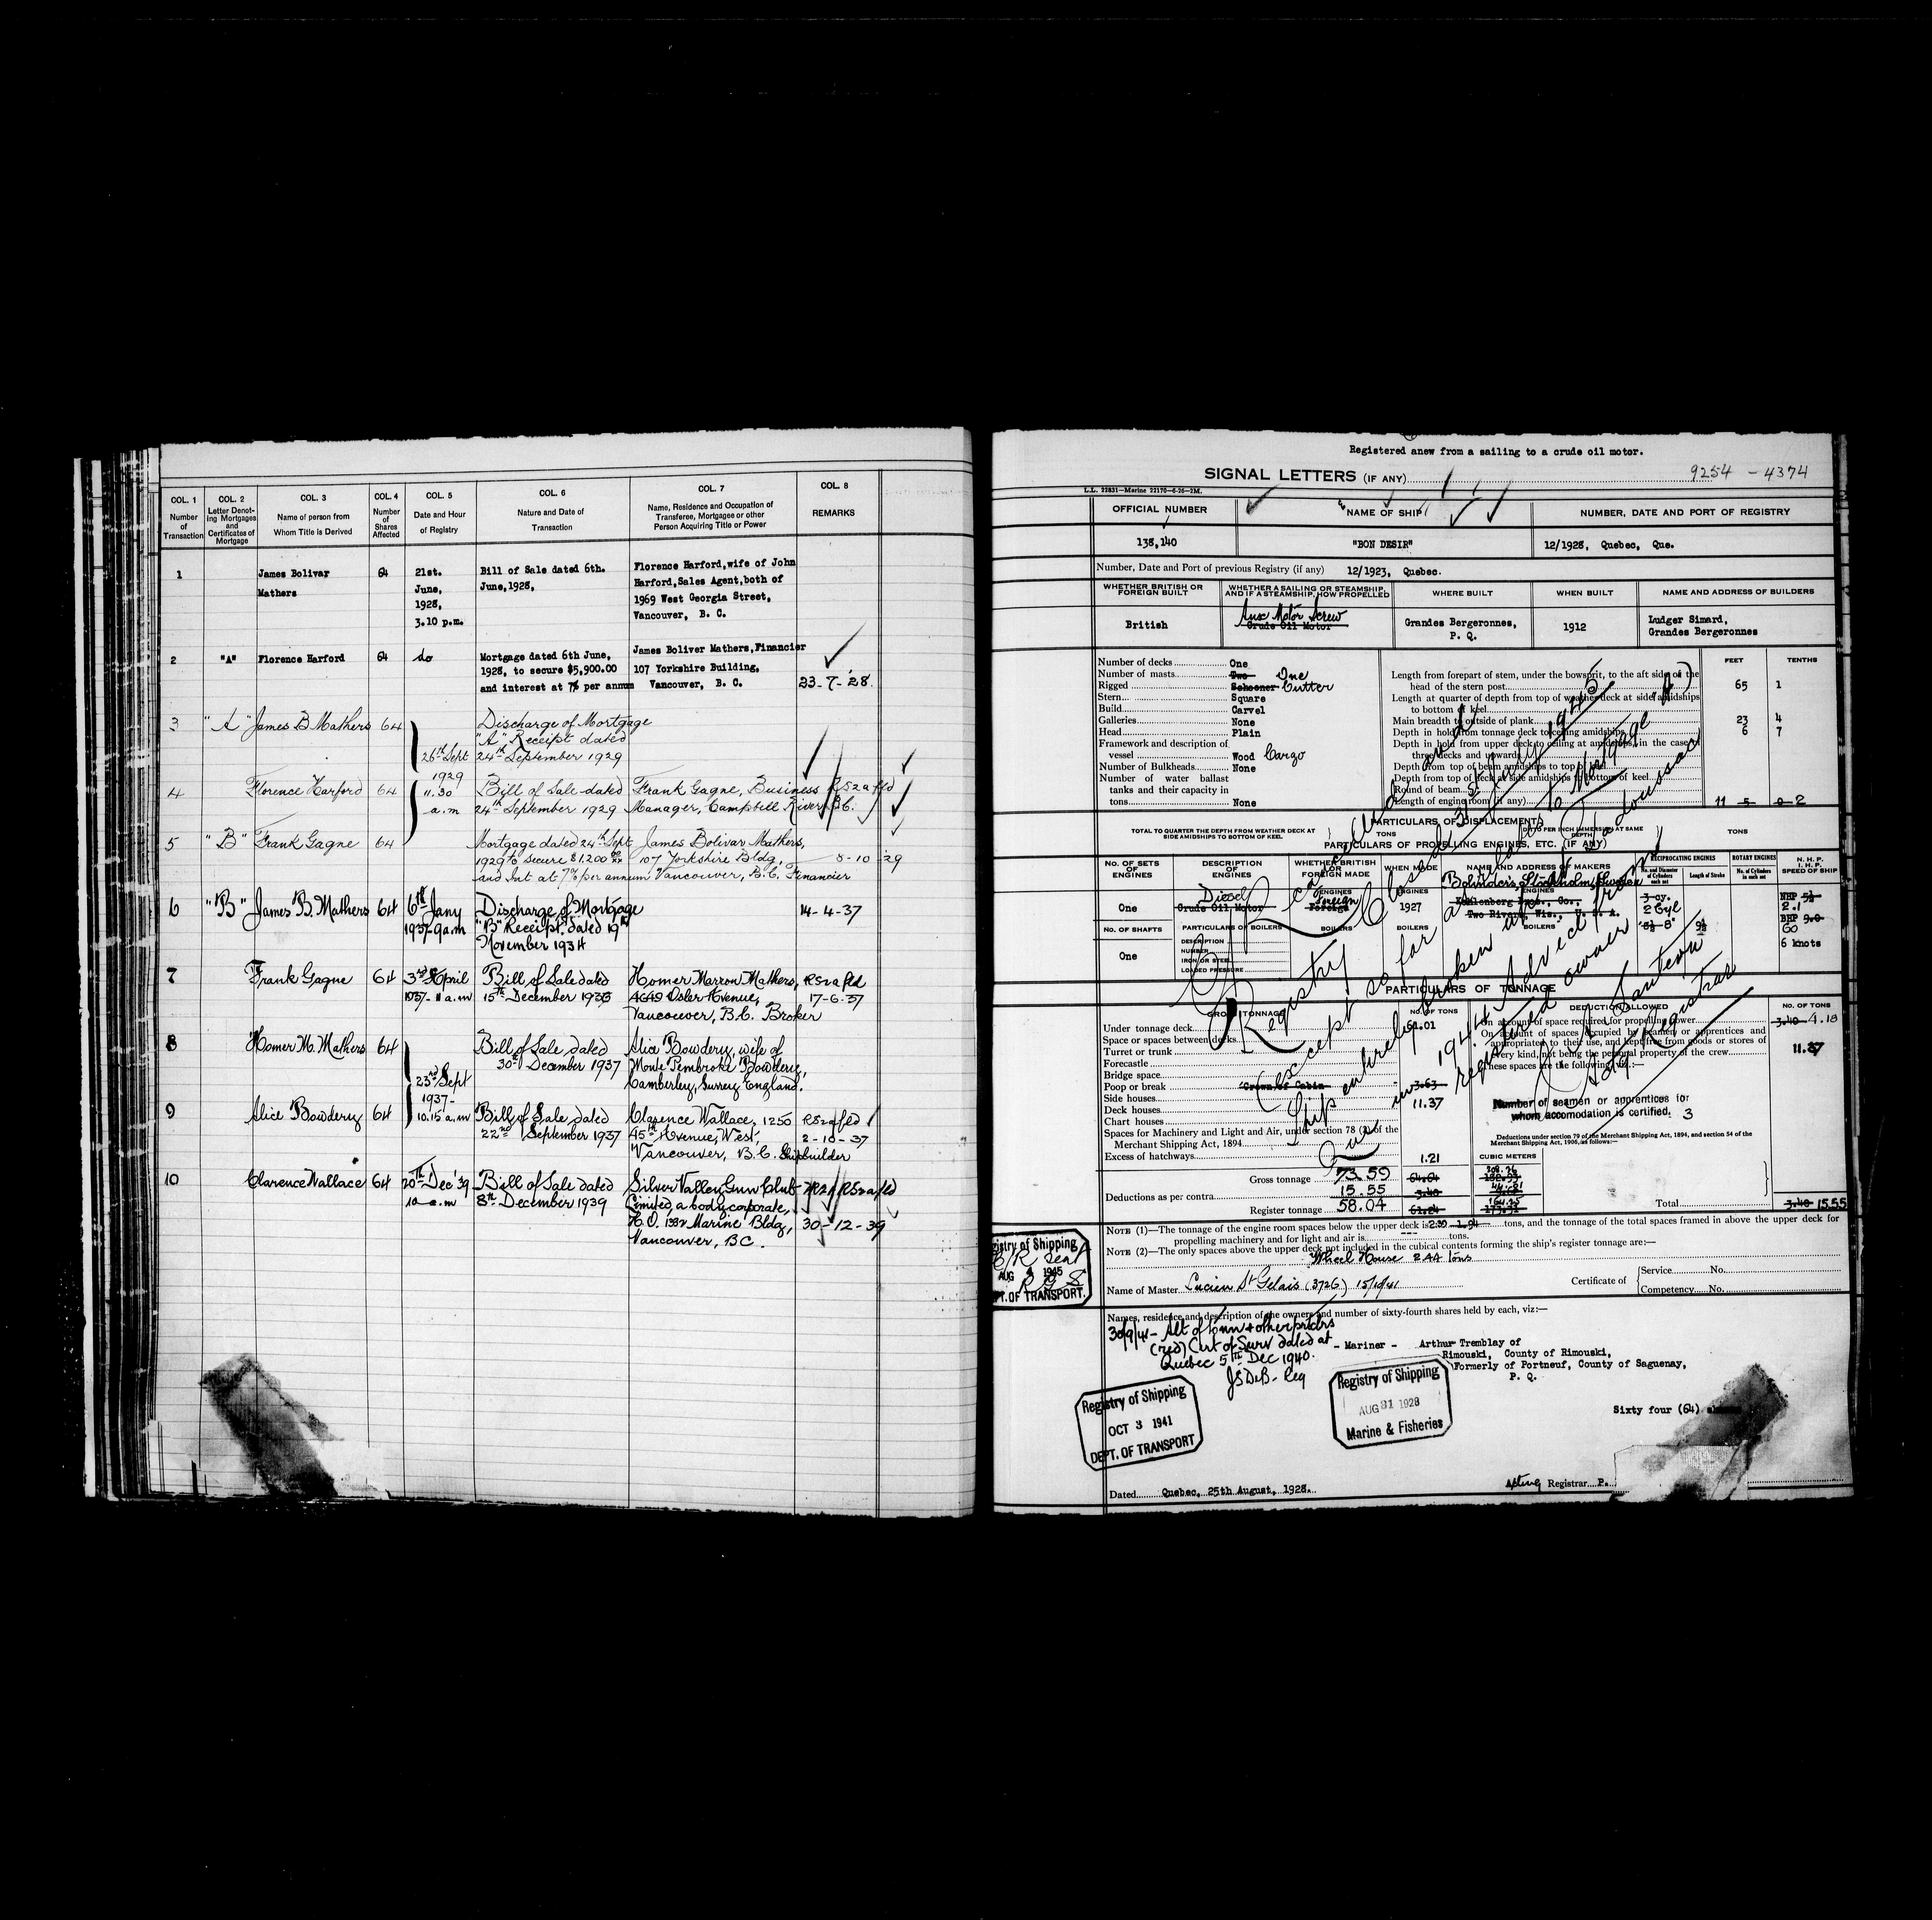 COL. 1
Number of Transaction
COL. 2
Letter Denoting Mortgages and Certificates of Mortgage
COL. 3
Name of person from Whom Title is Derived
COL. 4
Number of Shares Affected
COL. 5
Date and Hour of Registry
COL. 6
Nature and Date of Transaction
COL. 7
Name, Residence and Occupation of Transferee, Mortgagee or other Person Acquiring Title or Power
COL. 8
REMARKS
1
James Bolivar
Mathers
64
21st.
June,
1928,
3.10 p.m.
Bill of Sale dated 6th.
June,1928,
Florence Harford,wife of John
Harford,Sales Agent,both of
1969 West Georgia Street,
Vancouver, B. C.
2 "A" Florence Harford 64 do
Mortgage dated 6th June,
1928, to secure $5,900.00
and interest at 7% per annum
James Boliver Mathers,Financier
107 Yorkshire Building,
Vancouver, B. C.
23-7-28.
3 "A" James B Mathers 64
Discharge of Mortgage
"A" Receipt dated
24th September 1929
26th Sept
1929
11.30
a.m
4 Florence Harford 64
Bill of Sale dated
24th September 1929
Frank Gagne, Business
Manager, Campbell River, B.C.
R52a fld
5 "B" Frank Gagne 64
Mortgage dated 24th Sept
1929 to secure $1,200 00/xx
and Int at 7% per annum
James Bolivar Mathers,
107 Yorkshire Bldg,
Vancouver, B.C. Financier
8-10-29
6 "B" James B. Mathers 64
6th Jany
1937-9a.m
Discharge of Mortgage
"B" Receipt dated 19th
November 1934
14-4-37
7 Frank Gagne 64
3rd April
1937-11 a.m
Bill of Sale dated
15th December 1936
Homer Marron Mathers,
4649 Osler Avenue,
Vancouver, B.C. Broker
R52a fld
17-6-37
8 Homer M. Mathers 64
Bill of Sale dated
30th December 1937
Alice Bowdery, wife of
Monte Pembroke Bowdery,
Camberley, Surrey England.
23rd Sept
1937-
10.15 a.m
9 Alice Bowdery 64
Bill of Sale dated
22nd September 1937
Clarence Wallace, 1250
45th Avenue, West,
Vancouver, B.C. Shipbuilder
R52a fld
2-10-37
10 Clarence Wallace 64
20th Dec '39
10 a.m
Bill of Sale dated
8th December 1939
Silver Valley Gun Club
Limited, a body corporate,
H.O. 1332 Marine Bldg,
Vancouver, BC.
R52a fld
30-12-39
Registered anew from a sailing to a crude oil motor.
SIGNAL LETTERS (IF ANY)
9254 - 4374
L.L. 22831-Marine 22170-6-26-2M.
OFFICIAL NUMBER
NAME OF SHIP
NUMBER, DATE AND PORT OF REGISTRY
138,140
"BON DESIR"
12/1928, Quebec, Que.
Number, Date and Port of previous Registry (if any) 12/1923, Quebec.
WHETHER BRITISH OR FOREIGN BUILT
WHETHER A SAILING OR STEAMSHIP, AND IF A STEAMSHIP, HOW PROPELLED
WHERE BUILT
WHEN BUILT
NAME AND ADDRESS OF BUILDERS
British
Aux Motor Screw
Crude Oil Motor
Grandes Bergeronnes,
P. Q.
1912
Ludger Simard,
Grandes Bergeronnes
Number of decks One
Number of masts Two One
Rigged Schooner Cutter
Stern Square
Build Carvel
Galleries None
Head Plain
Framework and description of vessel Wood Cargo
Number of Bulkheads None
Number of water ballast tanks and their capacity in tons None
FEET TENTHS
Length from forepart of stem, under the bowsprit, to the aft side of the head of the stern post 65 1
Length at quarter of depth from top of weather deck at side amidships to bottom of keel
Main breadth to outside of plank 23 4
Depth in hold from tonnage deck to ceiling amidships 6 7
Depth in hold from upper deck to ceiling at amidships, in the case of three decks and upwards
Depth from top of beam amidships to top of keel
Depth from top of deck at side amidships to bottom of keel
Round of beam
Length of engine room (if any) 11 5 0 2
PARTICULARS OF DISPLACEMENT
TOTAL TO QUARTER THE DEPTH FROM WEATHER DECK AT SIDE AMIDSHIPS TO BOTTOM OF KEEL
TONS
DITTO PER INCH IMMERSION AT SAME DEPTH
TONS
PARTICULARS OF PROPELLING ENGINES, ETC. (IF ANY)
NO. OF SETS OF ENGINES
DESCRIPTION OF ENGINES
WHETHER BRITISH OR FOREIGN MADE
WHEN MADE
NAME AND ADDRESS OF MAKERS
RECIPROCATING ENGINES
ROTARY ENGINES
N. H. P.
I. H. P.
SPEED OF SHIP
No. and Diameter of Cylinders each set
Length of Stroke
No. of Cylinders in each set
One
Diesel
Crude Oil Motor
ENGINES
Foreign
Foreign
ENGINES
1927
Bolinders, Stockholm, Sweden
ENGINES
Kahlenberg Bros., Cor.,
Two Rivers, Wis., U. S. A.
3 cy.
2 Cyl
NHP
2.1
BHP 9.0
60
6 knots
NO. OF SHAFTS
PARTICULARS OF BOILERS
BOILERS
BOILERS
BOILERS
One
DESCRIPTION
NUMBER
IRON OR STEEL
LOADED PRESSURE
PARTICULARS OF TONNAGE
GROSS TONNAGE
NO. OF TONS
DEDUCTIONS ALLOWED
NO. OF TONS
Under tonnage deck 61.01
Space or spaces between decks
Turret or trunk
Forecastle
Bridge space
Poop or break Crown of Cabin 3.63
Side houses
Deck houses 11.37
Chart houses
Spaces for Machinery and Light and Air, under section 78 (2) of the Merchant Shipping Act, 1894
Excess of hatchways 1.21
Gross tonnage 73.59 64.64
15.55
Deductions as per contra 3.40
Register tonnage 58.04 61.24
CUBIC METERS
208.26
164.25
173.31
On account of space required for propelling power 3.40 4.18
On account of spaces occupied by seamen or apprentices and appropriated to their use, and kept free from goods or stores of every kind, not being the personal property of the crew 11.37
These spaces are the following, viz.:—
Number of seamen or apprentices for
whom accomodation is certified. 3
Deductions under section 79 of the Merchant Shipping Act, 1894, and section 54 of the Merchant Shipping Act, 1906, as follows:—
Total 3.40 15.55
NOTE (1)—The tonnage of the engine room spaces below the upper deck is 2.30 1.94 tons, and the tonnage of the total spaces framed in above the upper deck for propelling machinery and for light and air is --- tons.
NOTE (2)—The only spaces above the upper deck not included in the cubical contents forming the ship's register tonnage are:—
Wheel House 2.44 tons
Name of Master Lucien St Gelais (3726) 15/10/41
Certificate of
Service No.
Competency No.
Names, residence and description of the owners and number of sixty-fourth shares held by each, viz:—
30/9/41 - Alt of tonn + other prtclrs
(red) Cert of Surv dated at
Quebec 5th Dec 1940.
JSDeB- Reg
- Mariner - Arthur Tremblay of
Rimouski, County of Rimouski,
Formerly of Portneuf, County of Saguenay,
P. Q.
Sixty four (64)
Registry of Shipping
AUG 4 1945
DEPT. OF TRANSPORT.
C/R Sent
R G S
Registry of Shipping
OCT 3 1941
DEPT. OF TRANSPORT
Registry of Shipping
AUG 31 1928
Marine & Fisheries
Acting Registrar P.
Dated Quebec, 25th August, 1928.
Registry Closed 31st July 1945
(except so far as relates to Mortgage A)
Ship entirely broken up at Tadoussac
Que in 1944. Advice from
registered owner
Actg Registrar